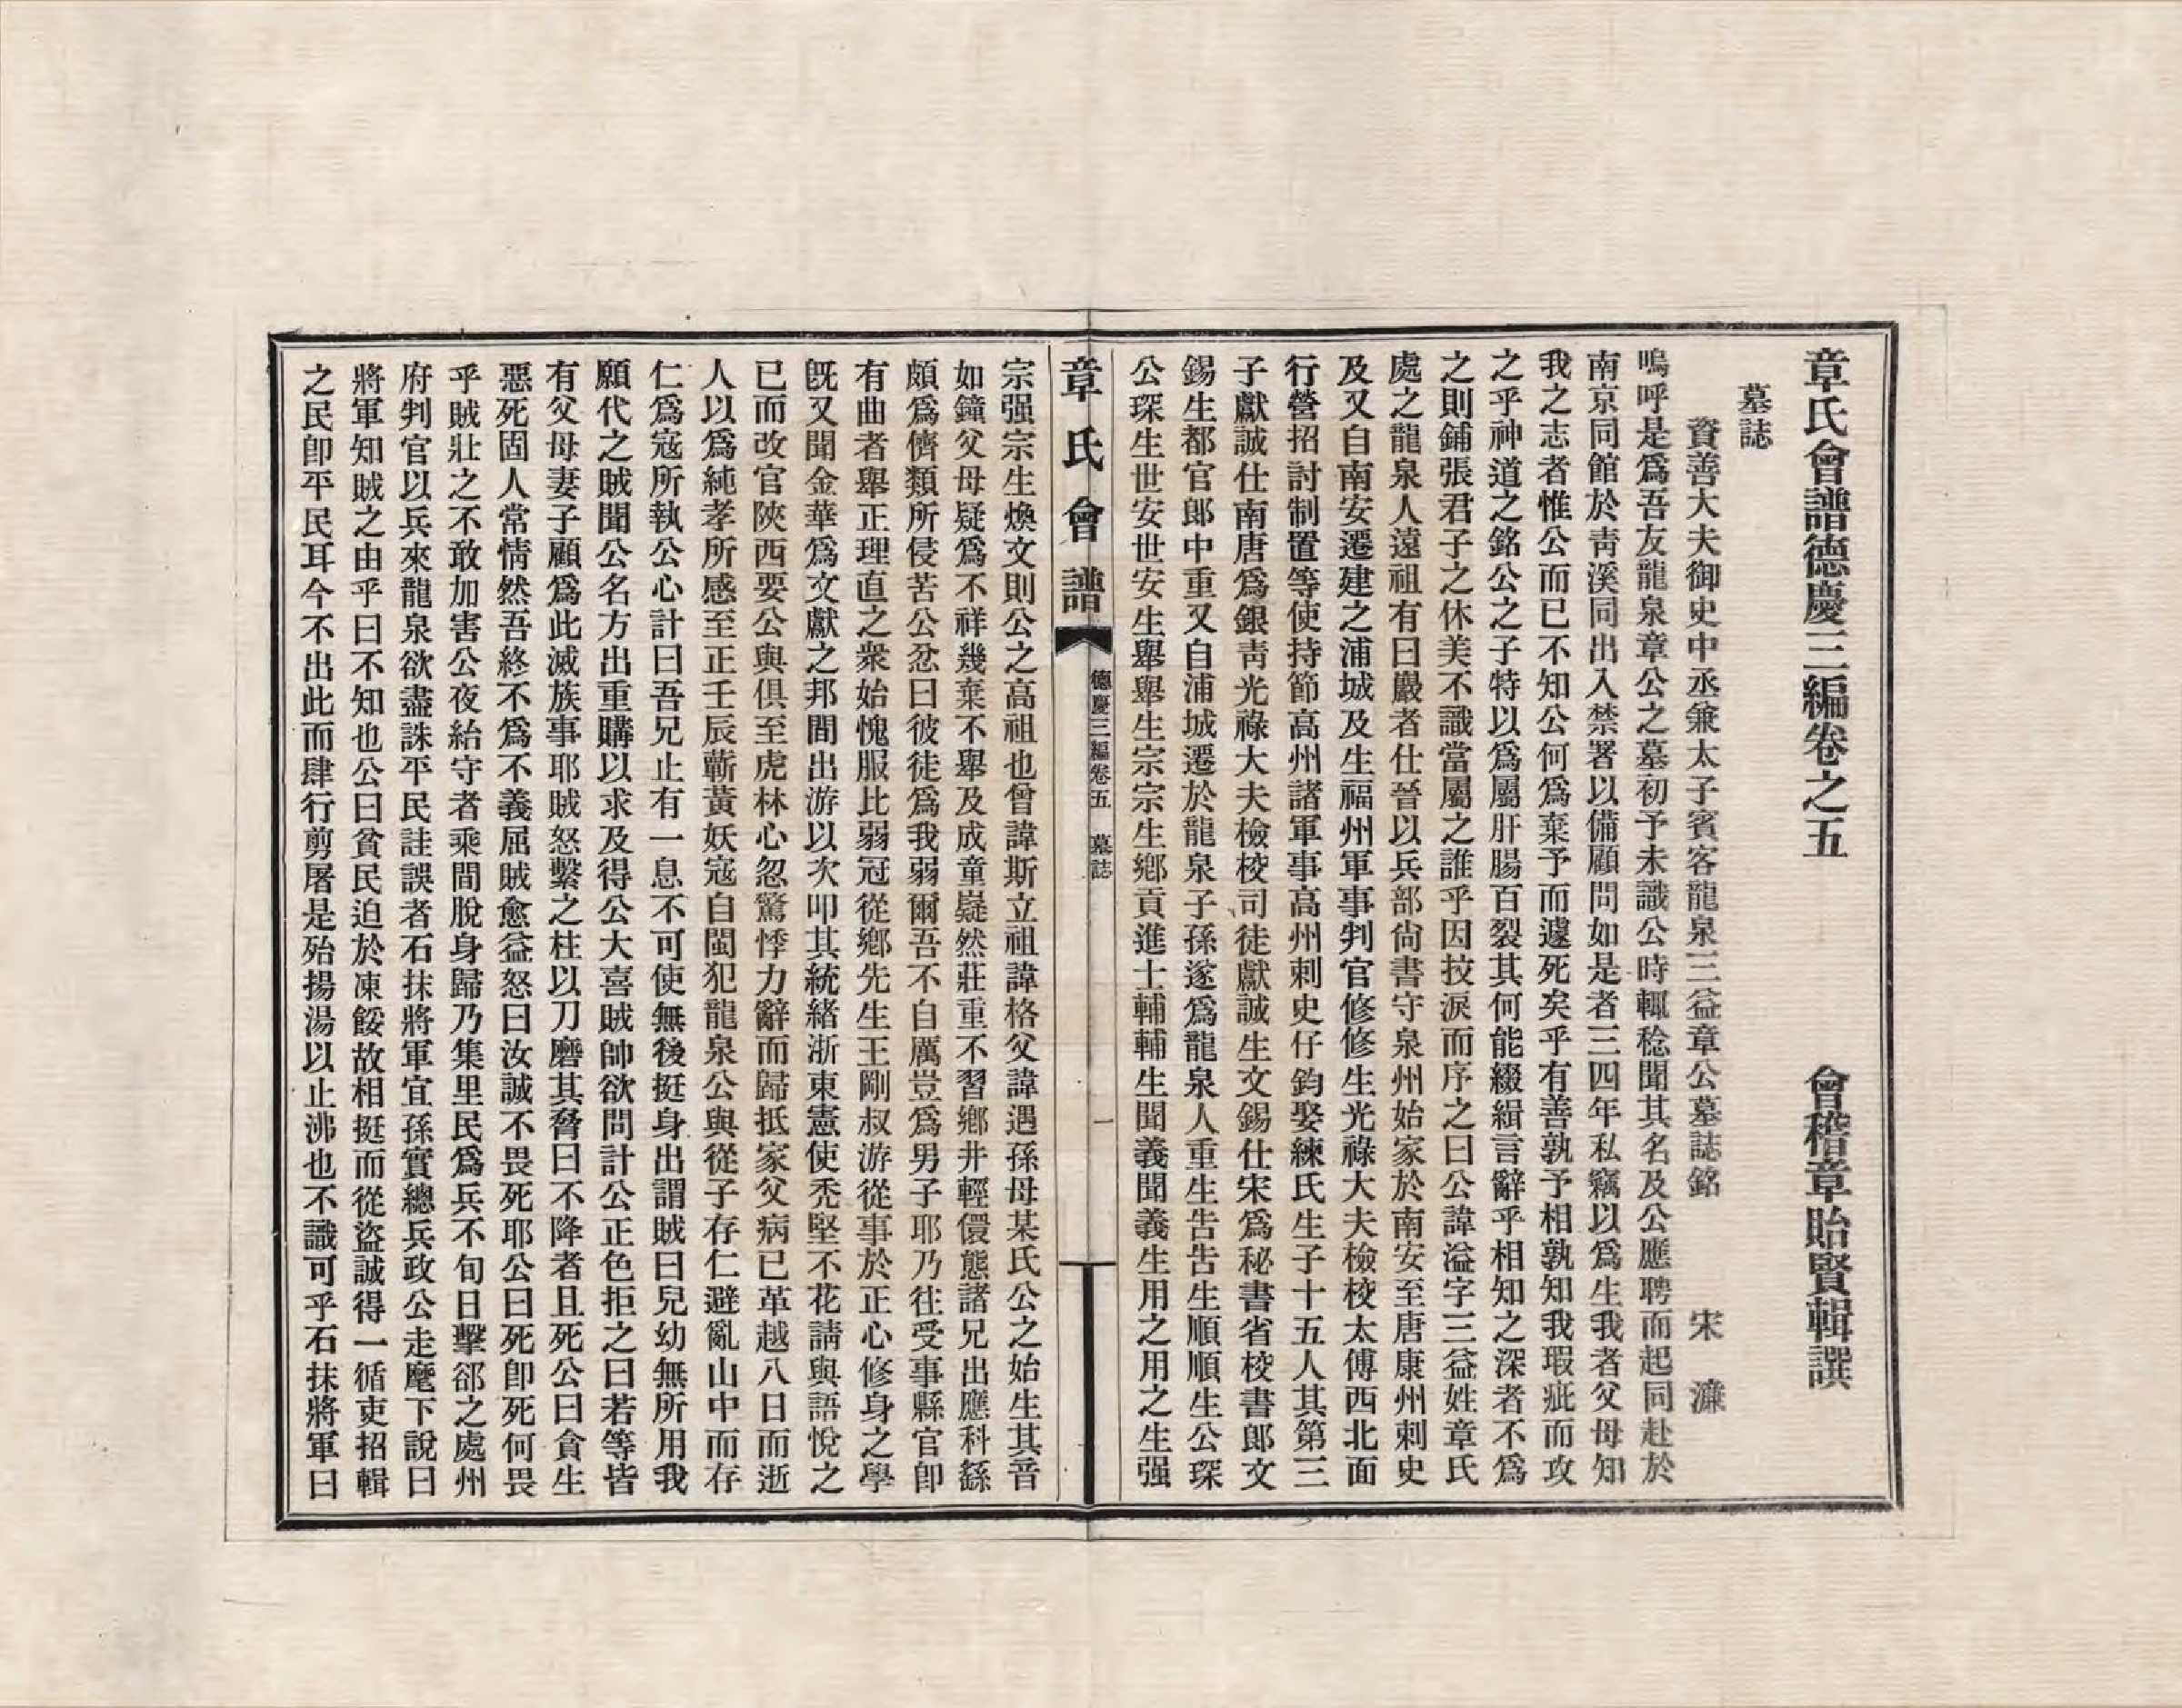 章氏會譜德慶三編卷之五　會稽章貽賢輯譔
墓誌
資善大夫御史中丞兼太子賓客龍泉三益章公墓誌銘　宋　濂
嗚呼是爲吾友龍泉章公之墓初予未識公時輒稔聞其名及公應聘而起同赴於
南京同館於靑溪同出入禁署以備顧問如是者三四年私竊以爲生我者父母知
我之志者惟公而已不知公何爲棄予而遽死矣乎有善孰予相孰知我瑕疵而攻
之乎神道之銘公之子特以爲屬肝腸百裂其何能綴緝言辭乎相知之深者不爲
之則鋪張君子之休美不識當屬之誰乎因抆淚而序之曰公諱溢字三益姓章氏
處之龍泉人遠祖有曰嚴者仕晉以兵部尙書守泉州始家於南安至唐康州刺史
及又自南安遷建之浦城及生福州軍事判官修修生光祿大夫檢校太傅西北面
行營招討制置等使持節高州諸軍事高州刺史仔鈞娶練氏生子十五人其第三
子獻誠仕南唐爲銀靑光祿大夫檢校司徒獻誠生文錫仕宋爲秘書省校書郎文
錫生都官郎中重又自浦城遷於龍泉子孫遂爲龍泉人重生吿吿生順順生公琛
公琛生世安世安生舉舉生宗宗生鄕貢進士輔輔生聞義聞義生用之用之生强
章氏會譜　德慶三編卷五　墓誌　一
宗强宗生煥文則公之高祖也曾諱斯立祖諱格父諱遇孫母某氏公之始生其音
如鐘父母疑爲不祥幾棄不舉及成童嶷然莊重不習鄕井輕儇態諸兄出應科繇
頗爲儕類所侵苦公忿曰彼徒爲我弱爾吾不自厲豈爲男子耶乃往受事縣官卽
有曲者舉正理直之衆始愧服比弱冠從鄕先生王剛叔游從事於正心修身之學
旣又聞金華爲文獻之邦間出游以次叩其統緖浙東憲使禿堅不花請與語悅之
已而改官陝西要公與俱至虎林心忽驚悸力辭而歸抵家父病已革越八日而逝
人以爲純孝所感至正壬辰蘄黃妖寇自閩犯龍泉公與從子存仁避亂山中而存
仁爲寇所執公心計曰吾兄止有一息不可使無後挺身出謂賊曰兒幼無所用我
願代之賊聞公名方出重購以求及得公大喜賊帥欲問計公正色拒之曰若等皆
有父母妻子顧爲此滅族事耶賊怒繫之柱以刀磨其脅曰不降者且死公曰貪生
惡死固人常情然吾終不爲不義屈賊愈益怒曰汝誠不畏死耶公曰死卽死何畏
乎賊壯之不敢加害公夜紿守者乘間脫身歸乃集里民爲兵不旬日擊郤之處州
府判官以兵來龍泉欲盡誅平民詿誤者石抹將軍宜孫實總兵政公走麾下說曰
將軍知賊之由乎曰不知也公曰貧民迫於凍餒故相挺而從盜誠得一循吏招輯
之民卽平民耳今不出此而肆行剪屠是殆揚湯以止沸也不識可乎石抹將軍曰